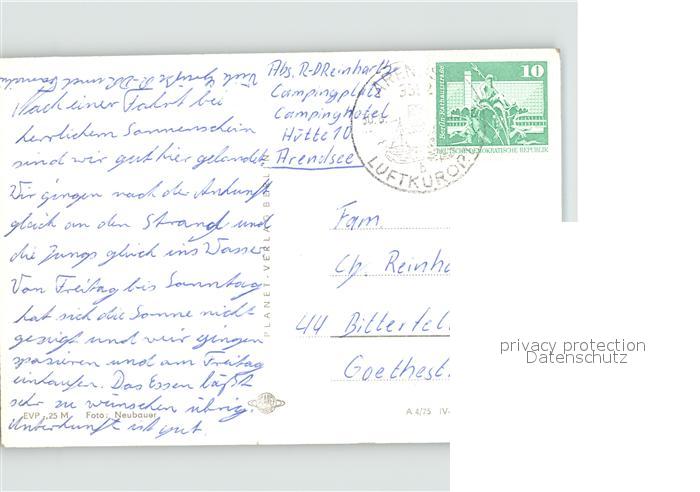 Viele Grüße R-D und Familie
Nach einer Fahrt bei
herrlichem Sonnenschein
sind wir gut hier gelandet.
Wir gingen nach der Ankunft
gleich an den Strand und
die Jungs gleich ins Wasser
Von Freitag bis Sonntag
hat sich die Sonne nicht
gezeigt und wir gingen
spazieren und am Freitag
einkaufen. Das Essen läßt
sehr zu wünschen übrig.
Unterkunft ist gut.
EVP -,25 M Foto: Neubauer
Abs. R-D Reinhartz
Campingplatz
Campinghotel
Hütte 10
Arendsee
PLANET-VERLAG BERL
AREN
LUFTKUROR
10
Berlin, Rathausstraße
DEUTSCHE DEMOKRATISCHE REPUBLIK
Fam.
Ch. Reinha
44 Bitterfel
Goethest.
A 4/75 IV-
privacy protection
Datenschutz